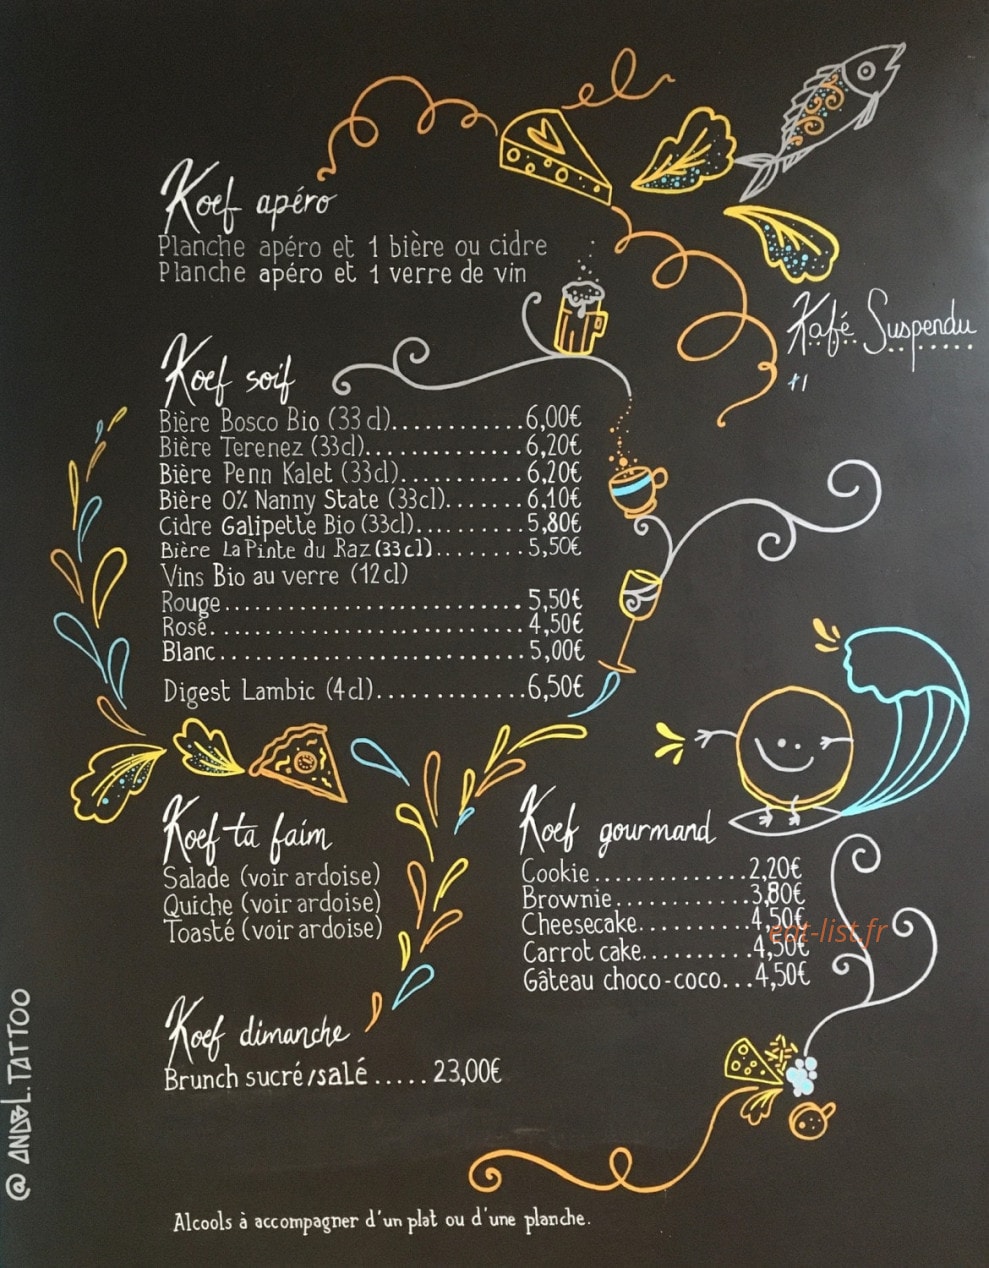 Koef apéro
Planche apéro et 1 bière ou cidre
Planche apéro et 1 verre de vin
Kafé Suspendu
+1
Koef soif
Bière Bosco Bio (33 cl)............6,00€
Bière Terenez (33cl)..............6,20€
Bière Penn Kalet (33cl)...........6,20€
Bière 0% Nanny State (33cl).......6,10€
Cidre Galipette Bio (33cl)..........5,80€
Bière La Pinte du Raz (33cl)........5,50€
Vins Bio au verre (12cl)
Rouge..........................5,50€
Rosé...........................4,50€
Blanc..........................5,00€
Digest Lambic (4cl).............6,50€
Koef ta faim
Salade (voir ardoise)
Quiche (voir ardoise)
Toasté (voir ardoise)
Koef gourmand
Cookie..............2,20€
Brownie............3,80€
Cheesecake..........4,50€
Carrot cake..........4,50€
Gâteau choco-coco...4,50€
eat-list.fr
Koef dimanche
Brunch sucré/salé.....23,00€
Alcools à accompagner d'un plat ou d'une planche.
@ANDBL.TATTOO